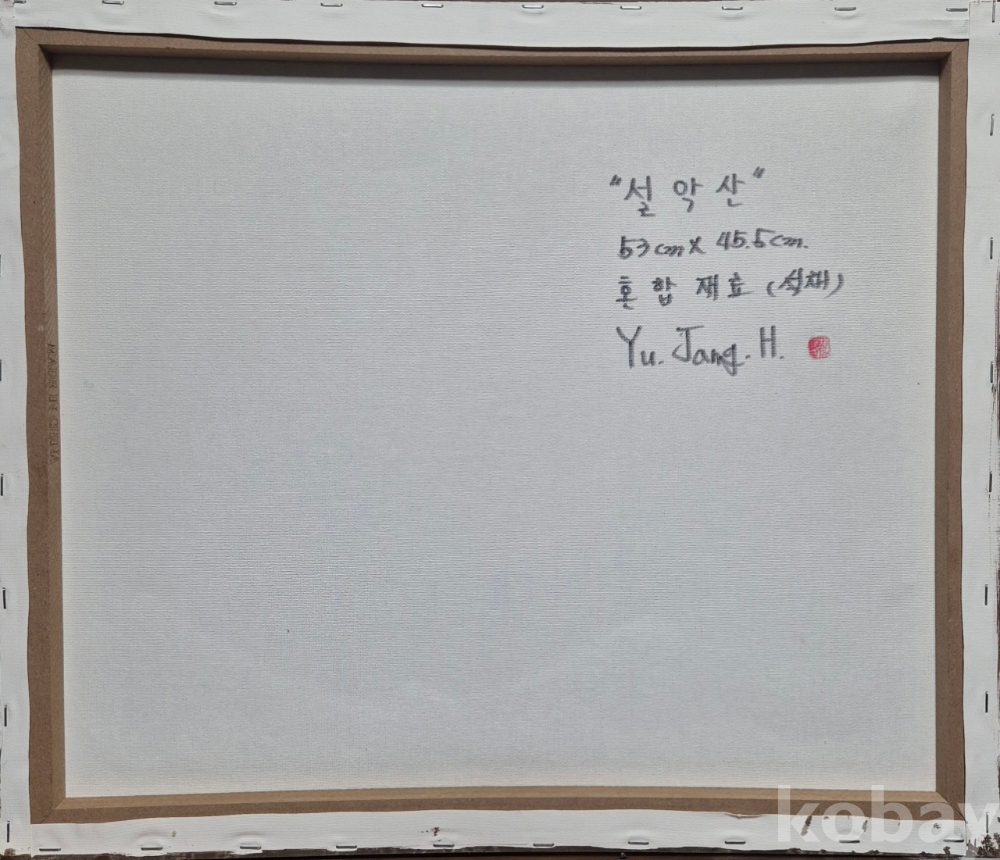 "설악산"
53cm x 45.5cm.
혼합재료 (석채)
Yu. Jang. H.
kobay